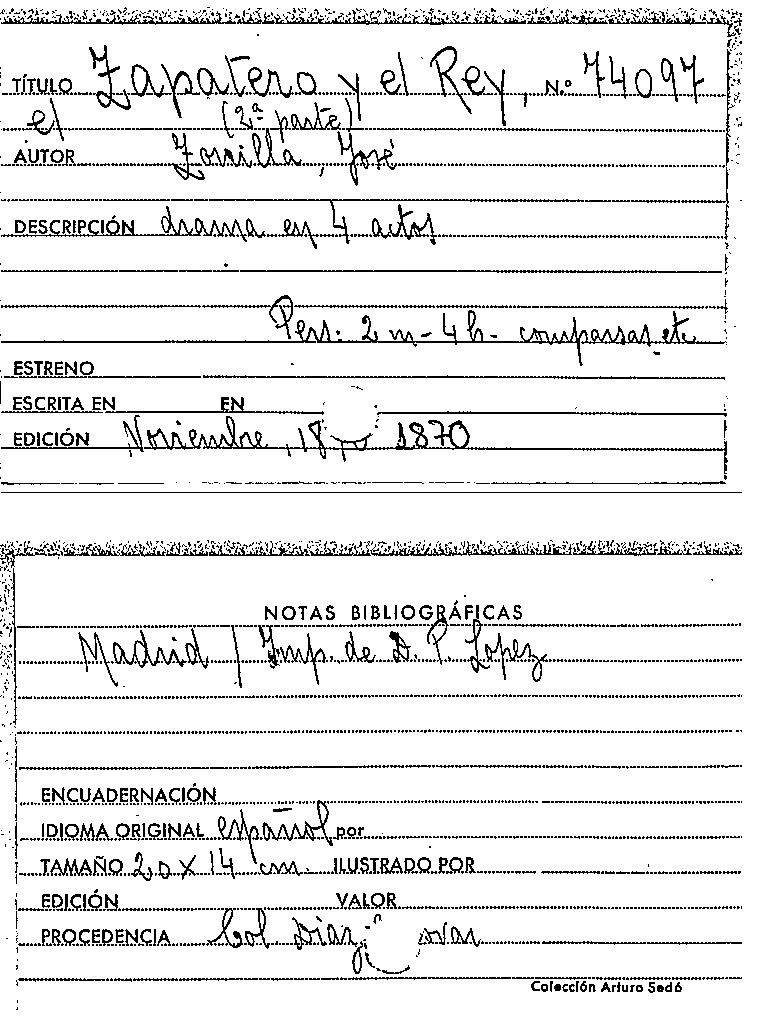 TÍTULO Zapatero y el Rey, N.º 74097
el (2ª parte)
AUTOR Zorrilla, José
DESCRIPCIÓN drama en 4 actos
Pers: 2 m - 4 h - comparsas etc
ESTRENO
ESCRITA EN EN
EDICIÓN Noviembre, 18 1870
NOTAS BIBLIOGRÁFICAS
Madrid / Imp. de D. P. Lopez
ENCUADERNACIÓN
IDIOMA ORIGINAL español por
TAMAÑO 20 X 14 cm. ILUSTRADO POR
EDICIÓN VALOR
PROCEDENCIA Col. Diaz
Colección Arturo Sedó